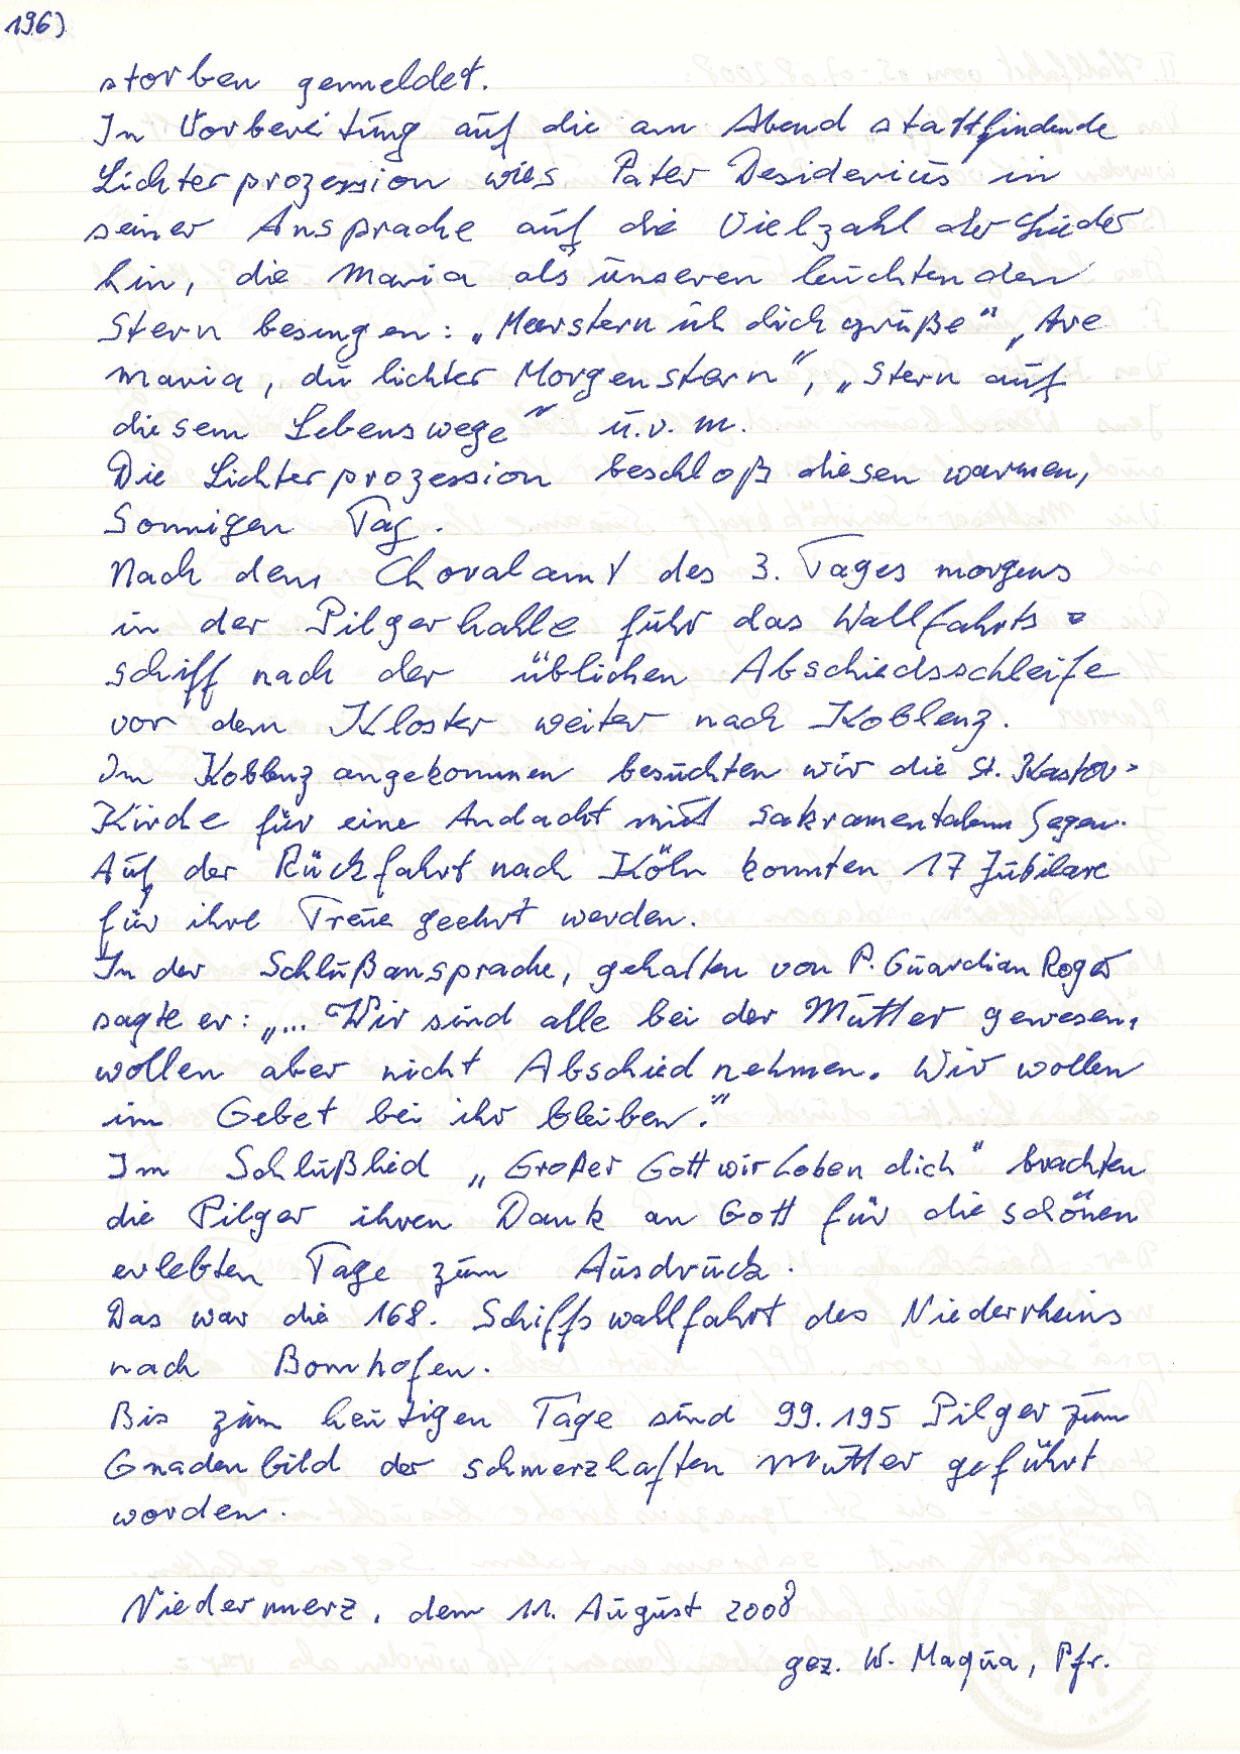 196)
storben gemeldet.
In Vorbereitung auf die am Abend stattfindende
Lichterprozession wies Pater Desiderius in
seiner Ansprache auf die Vielzahl der Lieder
hin, die Maria als unseren leuchtenden
Stern besingen: „Meerstern ich dich grüße“ „Ave
Maria, du lichter Morgenstern“, „Stern auf
diesem Lebenswege“ u.v.m.
Die Lichterprozession beschloß diesen warmen,
sonnigen Tag.
Nach dem Choralamt des 3. Tages morgens
in der Pilgerhalle fuhr das Wallfahrts-
schiff nach der üblichen Abschiedsschleife
vor dem Kloster weiter nach Koblenz.
Im Koblenz angekommen besuchten wir die St. Kastor-
Kirche für eine Andacht mit sakramentalem Segen.
Auf der Rückfahrt nach Köln konnten 17 Jubilare
für ihre Treue geehrt werden.
In der Schlußansprache, gehalten von P. Guardian Roger
sagte er: „... Wir sind alle bei der Mutter gewesen,
wollen aber nicht Abschied nehmen. Wir wollen
im Gebet bei ihr bleiben.“
Im Schlußlied „Großer Gott wir loben dich“ brachten
die Pilger ihren Dank an Gott für die schönen
erlebten Tage zum Ausdruck.
Das war die 168. Schiffswallfahrt des Niederrheins
nach Bornhofen.
Bis zum heutigen Tage sind 99.195 Pilger zum
Gnadenbild der schmerzhaften Mutter geführt
worden.
Niedermerz, dem 11. August 2008
gez. W. Maqua, Pfr.